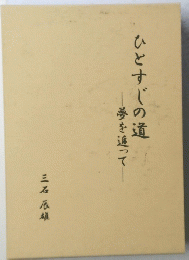 ひとすじの道
―夢を追って―
三石辰雄